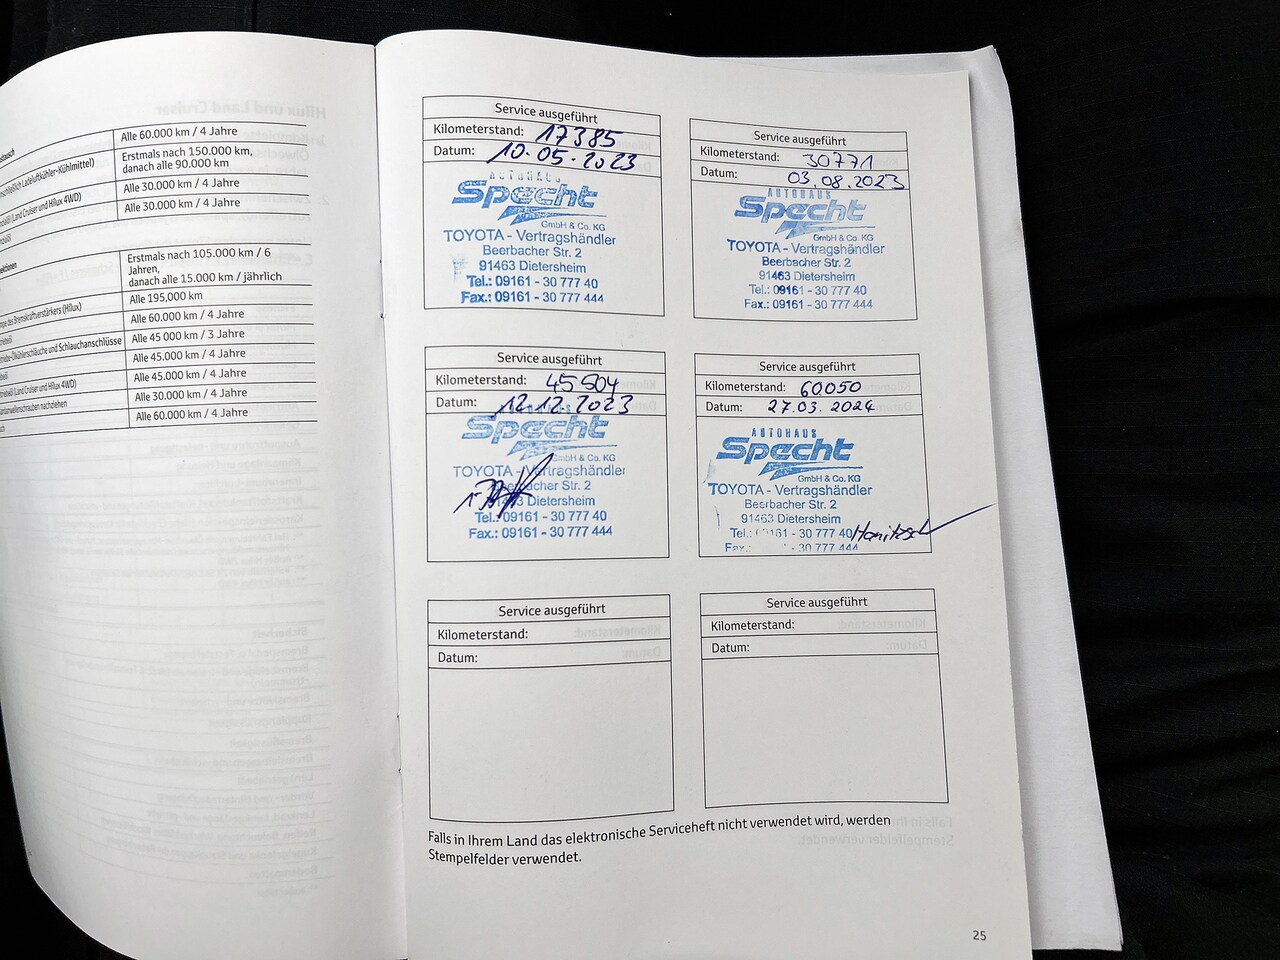 Alle 60.000 km / 4 Jahre
Erstmals nach 150.000 km,
danach alle 90.000 km
Ladeluftkühler-Kühlmittel)
Alle 30.000 km / 4 Jahre
(Land Cruiser und Hilux 4WD)
Alle 30.000 km / 4 Jahre
Erstmals nach 105.000 km / 6
Jahren,
danach alle 15.000 km / jährlich
Alle 195,000 km
des Bremskraftverstärkers (Hilux)
Alle 60.000 km / 4 Jahre
Alle 45 000 km / 3 Jahre
und Schlauchanschlüsse
Alle 45.000 km / 4 Jahre
Alle 45.000 km / 4 Jahre
(Land Cruiser und Hilux 4WD)
Alle 30.000 km / 4 Jahre
nachziehen
Alle 60.000 km / 4 Jahre
Service ausgeführt
Kilometerstand: 17385
Datum: 10.05.2023
AUTOHAUS
Specht
GmbH & Co. KG
TOYOTA - Vertragshändler
Beerbacher Str. 2
91463 Dietersheim
Tel.: 09161 - 30 777 40
Fax.: 09161 - 30 777 444
Service ausgeführt
Kilometerstand: 30771
Datum: 03.08.2023
AUTOHAUS
Specht
GmbH & Co. KG
TOYOTA - Vertragshändler
Beerbacher Str. 2
91463 Dietersheim
Tel.: 09161 - 30 777 40
Fax.: 09161 - 30 777 444
Service ausgeführt
Kilometerstand: 45504
Datum: 12.12.2023
Specht
GmbH & Co. KG
TOYOTA - Vertragshändler
Beerbacher Str. 2
91463 Dietersheim
Tel.: 09161 - 30 777 40
Fax.: 09161 - 30 777 444
Service ausgeführt
Kilometerstand: 60050
Datum: 27.03.2024
AUTOHAUS
Specht
GmbH & Co. KG
TOYOTA - Vertragshändler
Beerbacher Str. 2
91463 Dietersheim
Tel.: - 30 777 40
Fax.: - 30 777 444
Service ausgeführt
Kilometerstand:
Datum:
Service ausgeführt
Kilometerstand:
Datum:
Falls in Ihrem Land das elektronische Serviceheft nicht verwendet wird, werden
Stempelfelder verwendet.
25